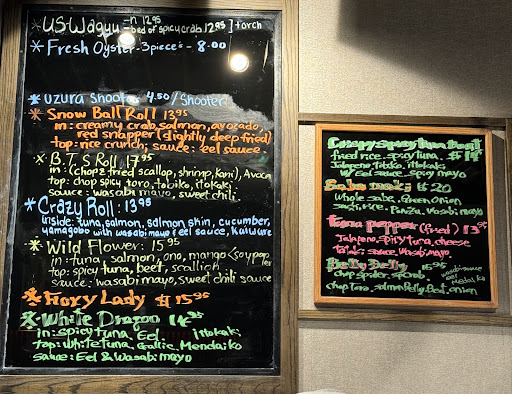 * US Wagyu - n 12.95
- bed of spicy crab 12.95 ] torch
* Fresh Oyster - 3 pieces - 8.00
* uzura shooter 4.50 / Shooter
* Snow Ball Roll 13.95
in: creamy crab, salmon, avocado,
red snapper (lightly deep fried)
top: rice crunch; sauce: eel sauce
* B.T.S Roll 17.95
in: (chop 2 fried scallop, shrimp, kani), Avoca
top: chop spicy toro, tobiko, itokaki
sauce: wasabi mayo, sweet chili
* Crazy Roll: 13.95
inside: tuna, salmon, salmon shin, cucumber,
yamagobo with wasabi mayo & eel sauce, kaiware
* Wild Flower: 15.95
in: tuna, salmon, ono, mango (soy paper
top: spicy tuna, beet, scallion
sauce: wasabi mayo, sweet chili sauce
* Foxy Lady $15.95
* White Dragon 14.95
in: spicy tuna, Eel itokaki
top: white tuna, Gallic, Mendaiko
sauce: Eel & Wasabi mayo
Crispy Spicy Tuna Bowl
fried rice, spicy tuna, $14
Jalapeno, Tobiko, itokaki
w/ Eel sauce, spicy mayo
$20
whole sabe, Green onion
rice. Ponzu, wasabi mayo
Tuna pepper (fried) $13.95
Jalapeno, spicy tuna, cheese
Tataki sauce, Wasabi mayo
Belly Belly 15.95
chop Toro, salmon Belly, Beet, onion